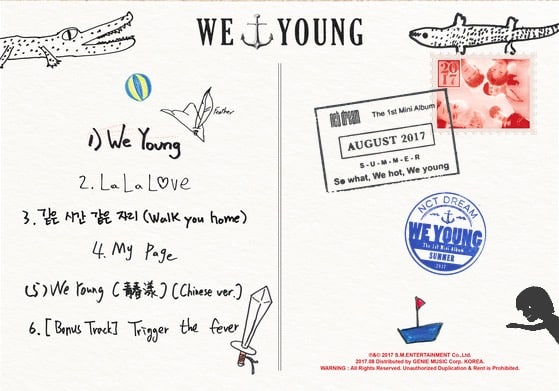 WE YOUNG
Feather
1) We Young
2. LaLa L♡ve
3. 같은 시간 같은 자리 (Walk you home)
4. My Page
(5) We Young (青春漾) (Chinese ver.)
6. [Bonus Track] Trigger the fever
2017
nct dream The 1st Mini Album
AUGUST 2017
S-U-M-M-E-R
So what, We hot, We young
NCT DREAM
WE YOUNG
The 1st Mini Album
SUMMER
2017
℗&© 2017 S.M.ENTERTAINMENT Co.,Ltd.
2017.08 Distributed by GENIE MUSIC Corp. KOREA.
WARNING : All Rights Reserved. Unauthorized Duplication & Rent is Prohibited.